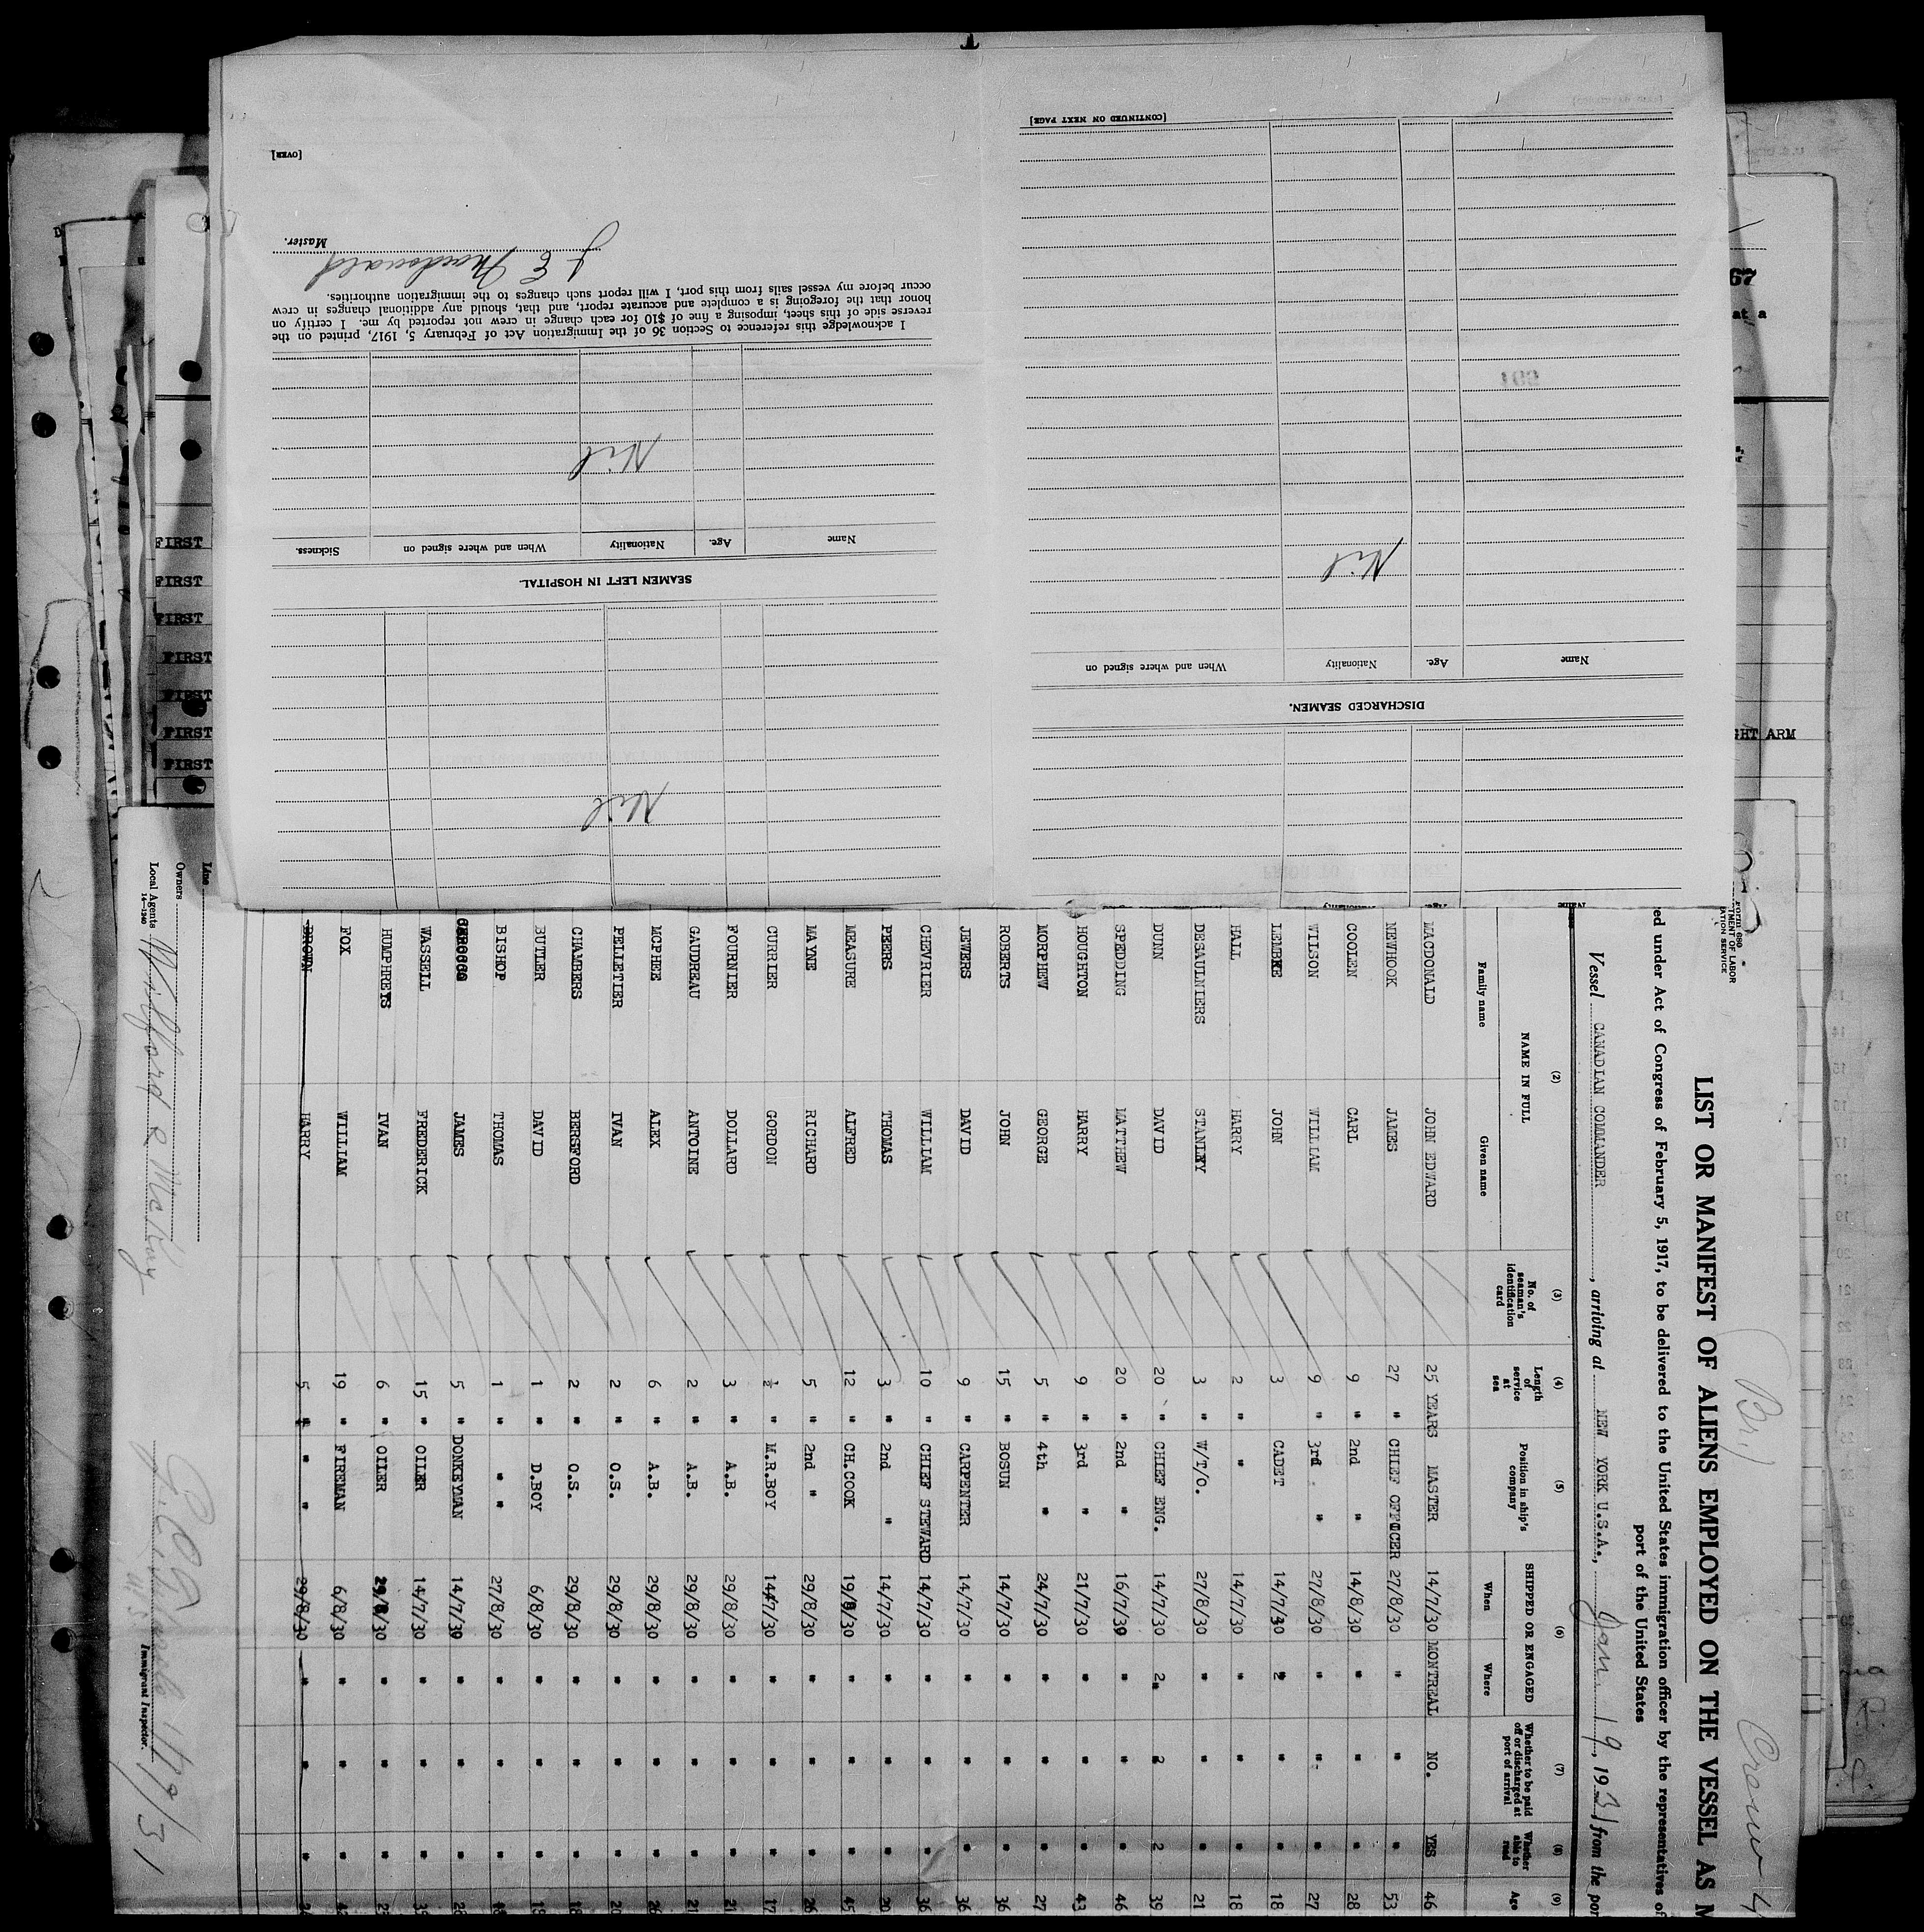 [CONTINUED ON NEXT PAGE]
Nil
Name Age. Nationality When and where signed on
DISCHARGED SEAMEN.
[OVER]
Master.
J E Macdonald
I acknowledge this reference to Section 36 of the Immigration Act of February 5, 1917, printed on the
reverse side of this sheet, imposing a fine of $10 for each change in crew not reported by me. I certify on
honor that the foregoing is a complete and accurate report, and that, should any additional changes in crew
occur before my vessel sails from this port, I will report such changes to the immigration authorities.
Nil
Name Age. Nationality When and where signed on Sickness.
SEAMEN LEFT IN HOSPITAL.
Nil
67
at a
GHT ARM
FIRST
FIRST
FIRST
FIRST
FIRST
FIRST
FIRST
Form 680
TMENT OF LABOR
ATION SERVICE
Br.
Crew
LIST OR MANIFEST OF ALIENS EMPLOYED ON THE VESSEL AS M
ed under Act of Congress of February 5, 1917, to be delivered to the United States immigration officer by the representatives of
port of the United States
Vessel CANADIAN COMMANDER, arriving at NEW YORK U.S.A., Jan. 19, 1931 from the por
(2) (3) (4) (5) (6) (7) (8) (9)
NAME IN FULL Family name Given name No. of seaman's identification card Length of service at sea Position in ship's company SHIPPED OR ENGAGED When Where Whether to be paid off or discharged at port of arrival Whether able to read Age
MACDONALD JOHN EDWARD 25 YEARS MASTER 14/7/30 MONTREAL NO. YES 46
NEWHOOK JAMES 27 " CHIEF OFFICER 27/8/30 " " " 53
COOLEN CARL 9 " 2nd " 14/8/30 " " " 28
WILSON WILLIAM 9 " 3rd " 27/8/30 " " " 27
LEMBKE JOHN 3 CADET 14/7/30 " " " 18
HALL HARRY 2 " " 14/7/30 " " " 18
DESAULNIERS STANLEY 3 " W/T/O. 27/8/30 " " " 21
DUNN DAVID 20 " CHIEF ENG. 14/7/30 2 2 2 39
SPEDDING MATTHEW 20 " 2nd " 16/7/30 " " " 46
HOUGHTON HARRY 9 " 3rd " 21/7/30 " " " 43
MORPHEW GEORGE 5 " 4th " 24/7/30 " " " 27
ROBERTS JOHN 15 " BOSUN 14/7/30 " " " 36
JEWERS DAVID 9 " CARPENTER 14/7/30 " " " 36
CHEVRIER WILLIAM 10 " CHIEF STEWARD 14/7/30 " " " 36
PEERS THOMAS 3 " 2nd " 14/7/30 " " " 20
MEASURE ALFRED 12 " CH.COOK 19/8/30 " " " 45
MAYNE RICHARD 5 " 2nd " 29/8/30 " " " 26
CURRIER GORDON ½ " M.R.BOY 14/7/30 " " " 17
FOURNIER DOLLARD 3 " A.B. 29/8/30 " " " 21
GAUDREAU ANTOINE 2 " A.B. 29/8/30 " " "
MCPHEE ALEX 6 " A.B. 29/8/30 " " " 26
PELLETIER IVAN 2 " O.S. 29/8/30 " " " 20
CHAMBERS BERSFORD 2 " O.S. 29/8/30 " " " 18
BUTLER DAVID 1 " D.BOY 6/8/30 " " "
BISHOP THOMAS 1 " " " 27/8/30 " " "
JAMES 5 " DONKEYMAN 14/7/30 " " "
WASSELL FREDERICK 15 " OILER 14/7/30 " " "
HUMPHREYS IVAN 6 " OILER 29/8/30 " " "
FOX WILLIAM 19 " FIREMAN 6/8/30 " " "
BROWN HARRY 5 " " " 29/8/30 " " "
Line
Owners
Local Agents
14—1240
Immigrant Inspector.